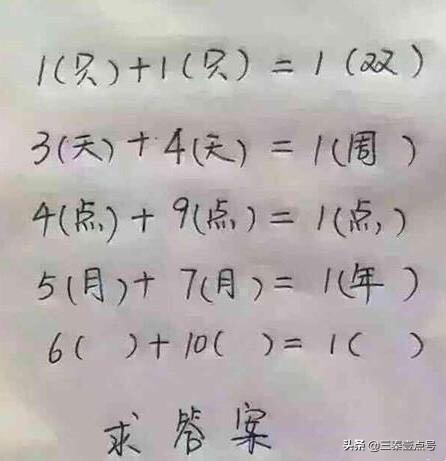 1(只)+1(只)=1(双)
3(天)+4(天)=1(周)
4(点)+9(点)=1(点)
5(月)+7(月)=1(年)
6( )+10( )=1( )
求答案
头条 @三秦壹点号